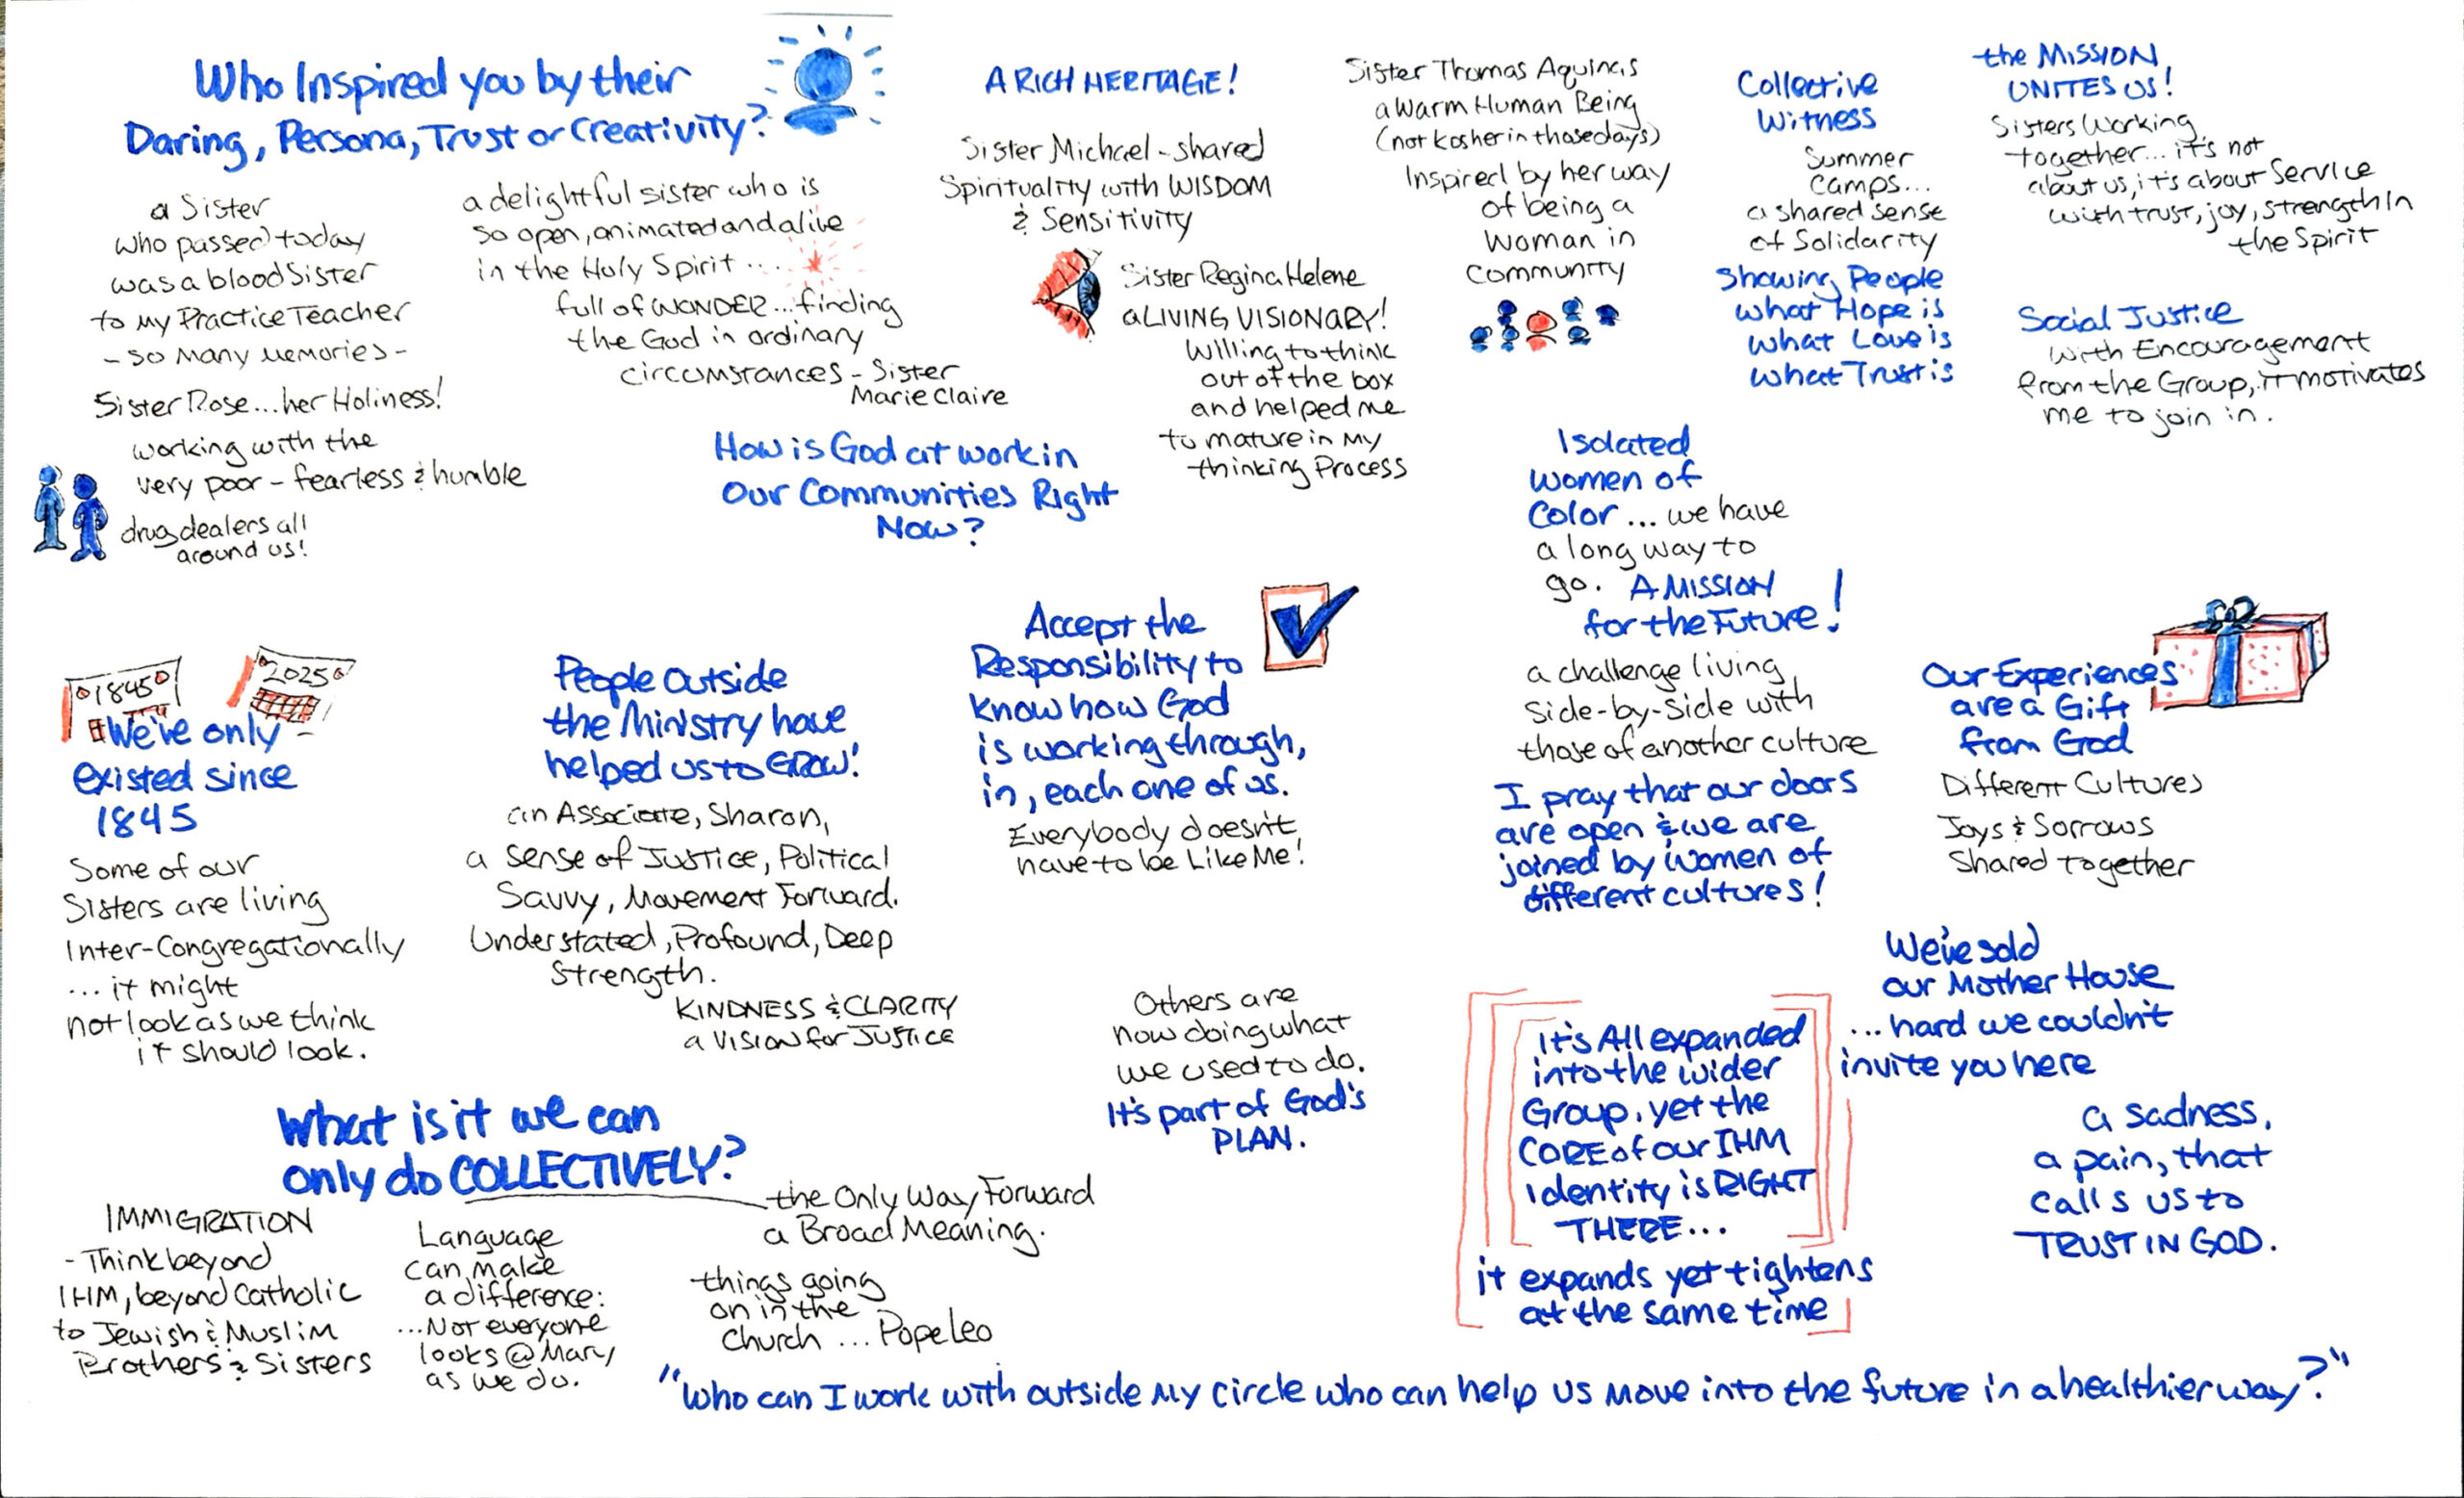 Who Inspired you by their
Daring, Persona, Trust or Creativity?
a Sister
who passed today
was a blood Sister
to my Practice Teacher
- so many memories -
Sister Rose... her Holiness!
working with the
very poor - fearless & humble
drug dealers all
around us!
a delightful sister who is
so open, animated and alive
in the Holy Spirit ...
full of WONDER... finding
the God in ordinary
circumstances - Sister
Marie Claire
A RICH HERITAGE!
Sister Michael - shared
Spirituality with WISDOM
& Sensitivity
Sister Regina Helene
a LIVING VISIONARY!
Willing to think
out of the box
and helped me
to mature in my
thinking Process
Sister Thomas Aquinas
a Warm Human Being
(not kosher in those days)
Inspired by her way
of being a
woman in
community
Collective
Witness
Summer
Camps...
a shared sense
of Solidarity
Showing People
what Hope is
what Love is
what Trust is
the MISSION
UNITES US!
Sisters Working
together... it's not
about us, it's about Service
with trust, joy, strength in
the Spirit
Social Justice
with Encouragement
from the Group, it motivates
me to join in.
How is God at work in
Our Communities Right
Now?
Isolated
Women of
Color ... we have
a long way to
go. A MISSION
for the Future!
a challenge living
side-by-side with
those of another culture
I pray that our doors
are open & we are
joined by women of
different cultures!
1845
2025
We've only
existed since
1845
Some of our
Sisters are living
Inter-Congregationally
... it might
not look as we think
it should look.
People Outside
the Ministry have
helped us to GROW!
an Associate, Sharon,
a sense of Justice, Political
Savvy, Movement Forward.
Understated, Profound, Deep
Strength.
KINDNESS & CLARITY
a Vision for Justice
Accept the
Responsibility to
know how God
is working through,
in, each one of us.
Everybody doesn't
have to be Like Me!
Our Experiences
are a Gift
from God
Different Cultures
Joys & Sorrows
Shared together
Others are
now doing what
we used to do.
It's part of God's
PLAN.
It's All expanded
into the wider
Group, yet the
CORE of our IHM
identity is RIGHT
THERE...
it expands yet tightens
at the same time
We've sold
our Mother House
... hard we couldn't
invite you here
a sadness,
a pain, that
calls us to
TRUST IN GOD.
What is it we can
only do COLLECTIVELY?
the Only Way Forward
a Broad Meaning.
IMMIGRATION
- Think beyond
IHM, beyond Catholic
to Jewish & Muslim
Brothers & Sisters
Language
can make
a difference:
...Not everyone
looks @ Mary
as we do.
things going
on in the
Church ... Pope Leo
"Who can I work with outside my circle who can help us move into the future in a healthier way?"